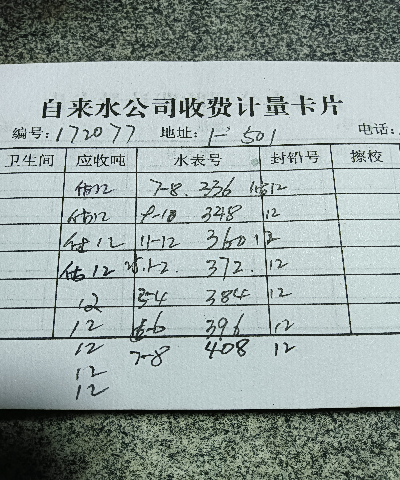 自来水公司收费计量卡片
编号:172077 地址:1-501 电话:
卫生间 应收吨 水表号 封铅号 擦校
估12 7-8. 336 估12
估12 9-10 348 12
估12 11-12 360 12
估12 25.1-2. 372. 12
12 3-4 384 12
12 5-6 396 12
12 7-8 408 12
12
12